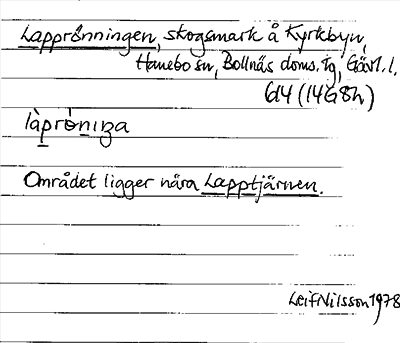 Lapprönningen, skogsmark å Kyrkbyn,
Hanebo sn, Bollnäs doms. tg, Gävl. l.
614 (14G8h)
làpröniṇa
Området ligger nära Lapptjärnen.
Leif Nilsson 1978